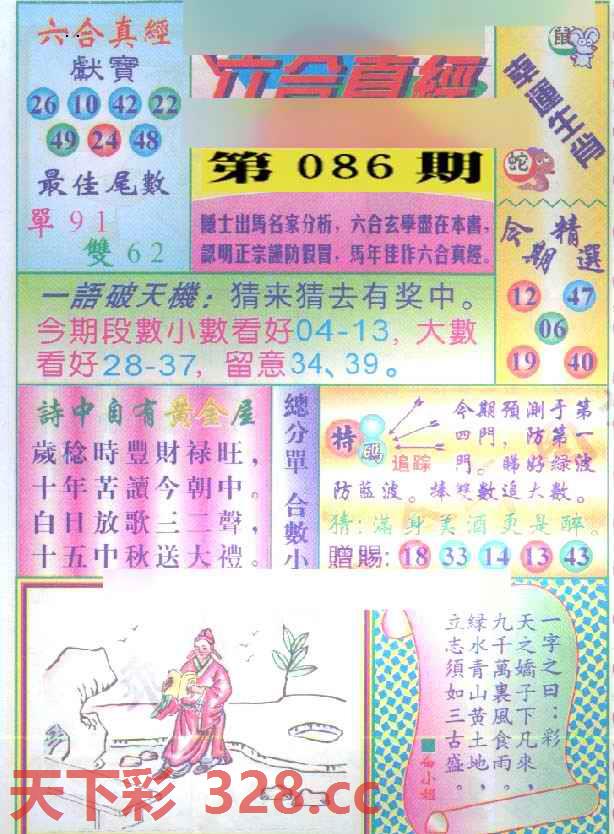 六合真經
獻寶
26 10 42 22
49 24 48
最佳尾數
單 9 1
雙 6 2
六合真經
第 086 期
隱士出馬名家分析，六合玄學盡在本書，
認明正宗謹防假冒，馬年佳作六合真經。
鼠
幸運生肖
蛇
今期精選
12 47
06
19 40
一語破天機：猜来猜去有奖中。
今期段數小數看好04-13，大數
看好28-37，留意34、39。
詩中自有黄金屋
歲稔時豐財禄旺，
十年苦讀今朝中。
白日放歌三二聲，
十五中秋送大禮。
總分單 合數小
特碼
追踪
今期預測于第
四門，防第一
門。睇好緑波
防藍波。捧雙數追大數。
猜：滿身美酒更是醉。
贈賜：18 33 14 13 43
一字之曰：彩
天之嬌子下凡來，
九千萬裏風食雨，
緑水青山黄土地，
立志須如三古盛。
天下彩 328.cc